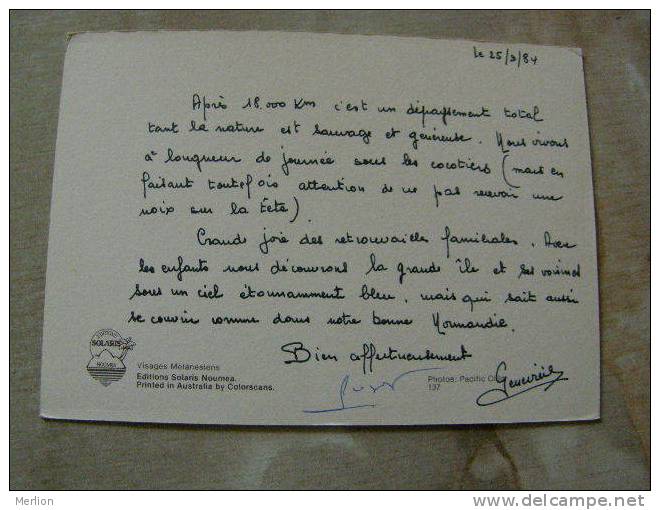 le 25/3/84
Après 18.000 Km c'est un dépaysement total
tant la nature est sauvage et généreuse. Nous vivons
à longueur de journée sous les cocotiers (mais en
faisant toutefois attention de ne pas recevoir une
noix sur la tête)
Grande joie des retrouvailles familiales. Avec
les enfants nous découvrons la grande île et ses voisines
sous un ciel étonnamment bleu, mais qui sait aussi
se couvrir comme dans notre bonne Normandie.
Bien affectueusement
Geneviève
SOLARIS
NOUMEA
Visages Mélanésiens
Editions Solaris Noumea.
Printed in Australia by Colorscans.
Photos: Pacific
137
Merlion
www.delcampe.net